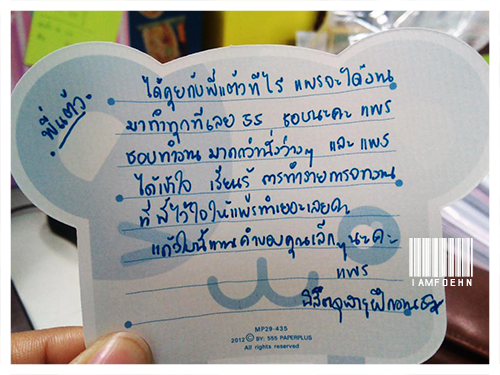 พี่แต้ว
ได้คุยกับพี่แต้วทีไร แพรจะได้งาน
มาทำทุกทีเลย 55 ชอบนะคะ แพร
ชอบทำงาน มากกว่านั่งว่างๆ และ แพร
ได้เข้าใจ เรียนรู้ การทำรายการจากงาน
ที่ พี่ไว้ใจให้แพรทำเยอะเลยค่ะ
แก้วใบนี้แทนคำขอบคุณเล็กๆนะคะ
แพร
นิสิตจุฬาฯฝึกงาน
IAMFOEHN
MP29-435
2012 © BY: 555 PAPERPLUS
All rights reserved